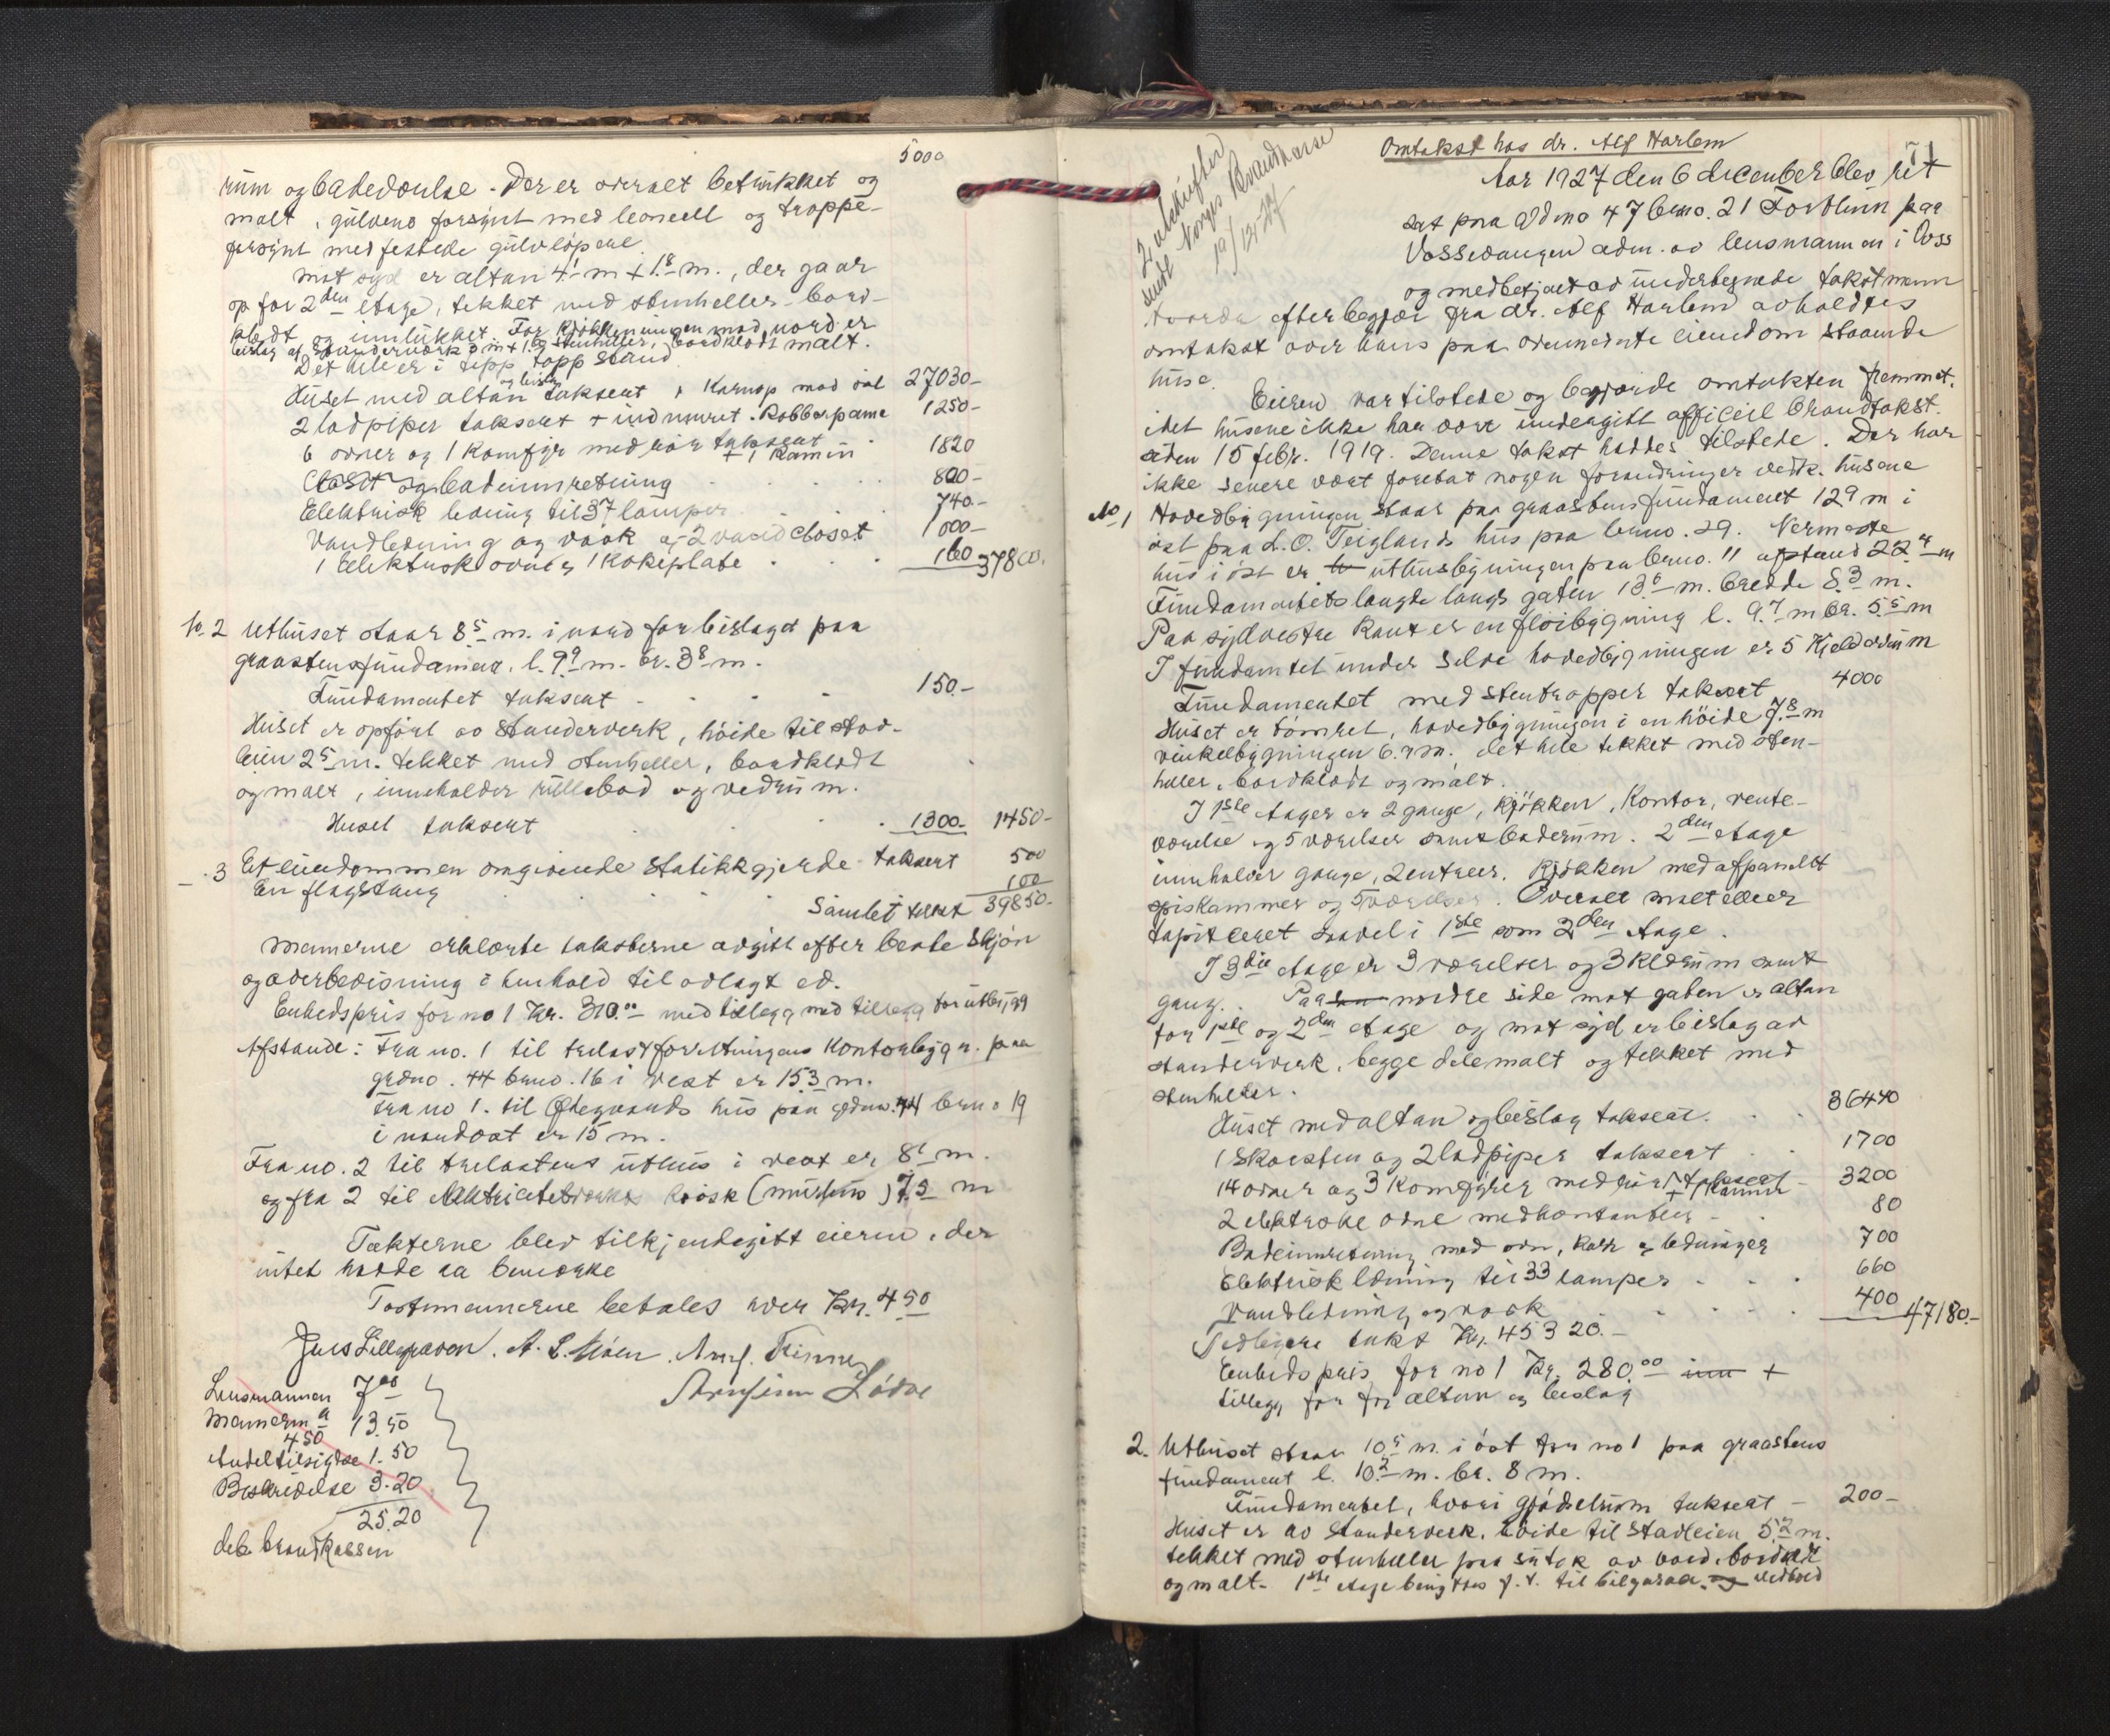 5000
rum og badeværelse. Der er overalt betrukket og
malt, gulvene forsynt med leoneell og trappe-
forsynt med festede gulvløpere
mot syd er altan 4.1 m + 1.8 m., der gaar
op for 2den etage, tekket med stenheller, bord-
klædt og innlukket. For kjøkkeningangen mod nord er
beislag af standerværk 3 m + 1.8 stenheller, bordklædt malt.
Det hele er i topp stand
Huset med altan og beislag taksert, Karnap mod øst 27030-
2 ladpiper taksert + indmuret Kobberpanne 1250-
6 ovner og 1 Komfyr med rør taksert + 1 Kamin 1820
Closet og badeinnretning 800-
Elektrisk ledning til 37 lamper 740.-
Vandledning og vask og 2 vandcloset 1000-
1 elektrisk ovn og 1 Kokeplate 160 37800.
No. 2 Uthuset staar 8.5 m. i nord for beislaget paa
graastensfundament, l. 9.9 m. br. 3.8 m.
Fundamentet taksert 150.-
Huset er opført av standerverk, høide til stav-
leien 2.5 m. tekket med stenheller, bordklædt
og malt, inneholder rullebod og vedrum.
Huset taksert 1300.- 1450-
- 3 Et eiendommen omgivende stakikkgjerde taksert 500
En flagstang 100
Samlet takst 39850.-
Mennerne erklærte taksterne avgitt efter beste skjøn
og overbevisning i henhold til avlagt ed.
Enhedspris for no 1 Kr. 310.00 med tillegg med tillegg for utbygg
Afstande: Fra no. 1 til trelastforretningens Kontorbygn. paa
grdno. 44 brno. 16 i vest er 15.3 m.
Fra no 1. til Øtegaards hus paa grdno. 44 brno 19
i nordost er 15 m.
Fra no. 2 til trelastens uthus i vest er 8.1 m.
og fra 2 til Elektricitetsverkets kiosk (murhus) 7.5 m
Takterne blev tilkjendegitt eieren, der
intet hadde aa bemerke
Tastmennerne betales hver Kr. 4.50
Jens Lillegraven. A. L. Moen. Arnf. Finne
Arnfinn Lødve
Lensmannen 7.00
Mennerne a 4.50 13.50
Andel tilsigelse 1.50
Beskrivelse 3.20
25.20
deb. brandkassen
2 utskrifter
sendt Norges Brandkasse
19/12-27
71
Omtakst hos dr. Alf Harlem
Aar 1927 den 6 december blev ret
sat paa grdno 47 brno. 21 Fortunn paa
Vossevangen adm. av lensmannen i Voss
og medbetjent av undertegnede takstmenn
hvorda efter begjær fra dr. Alf Harlem avholdtes
omtakst over hans paa ovennevnte eiendom staaende
huse.
Eieren var tilstede og begjærde omtakten fremmet,
idet husene ikke har vært undergitt officiell brandtakst
siden 15 febr. 1919. Denne takst haddes tilstede. Der har
ikke senere vært foretat nogen forandringer vedk. husene
No 1 Hovedbygningen staar paa graastensfundament 129 m i
øst paa L. O. Teiglands hus paa brno. 29. Nermeste
hus i øst er uthusbygningen paa brno. 11 afstand 22.4 m
Fundamentets længde langs gaten 13.6 m. bredde 8.3 m.
Paa sydvestre Kant er en fløibygning l. 9.7 m br. 5.5 m
I fundamtet under selve hovedbygningen er 5 Kjelderrum
Fundamentet med stentrapper taksert 4000
Huset er tømret, hovedbygningen i en høide 7.8 m
vinkelbygningen 6.4 m. det hele tekket med sten-
heller, bordklædt og malt.
I 1ste etage er 2 gange, Kjøkken, Kontor, vente-
værelse og 5 værelser samt baderum. 2den etage
inneholder gange, 2 entreer, Kjøkken med afpanelt
spiskammer og 5 værelser. Overalt malt eller
tapiteret saavel i 1ste som 2den etage.
I 3die etage er 3 værelser og 3 klerum samt
gang. Paa nordre side mot gaten er altan
for 1ste og 2den etage og mot syd er beislag av
standerverk, begge dele malt og tekket med
stenheller.
Huset med altan og beislag taksert. 36440
1 skorsten og 2 ladpiper taksert 1700
14 ovner og 3 Komfyrer med rør taksert + 1 Kamin 3200
2 elektriske ovne med kontanter 80
Badeinnretning med ovn, Kar og ledninger 700
Elektrisk ledning til 33 lamper 660
Vandledning og vask 400 47180.-
Tidligere takst Kr. 45320.-
Enhedspris for no 1 Kr. 280.00 inn +
tillegg for for altan og beislag
2. Uthuset staar 10.5 m. i øst fra no 1 paa graastens
fundament l. 10.2 m. br. 8 m.
Fundamentet, hvori gjødselrum taksert - 200-
Huset er av standerverk, høide til stavleien 5.2 m.
tekket med stenheller paa sutak av bord, bordklædt
og malt. 1ste etage benyttes f. t. til bilgarage, og vedbod